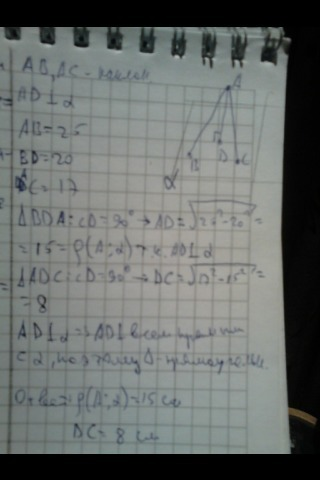 AB, AC - наклон.
AD ⊥ α
AB = 25
BD = 20
AC = 17
A
B
D
C
α
ΔBDA: ∠D = 90° → AD = √25² - 20² =
= 15 = ρ(A; α) т.к. AD ⊥ α
ΔADC: ∠D = 90° → DC = √17² - 15² =
= 8
AD ⊥ α → AD ⊥ всем прямым
с α, поэтому Δ - прямоугольн.
Ответ: ρ(A; α) = 15 см
DC = 8 см